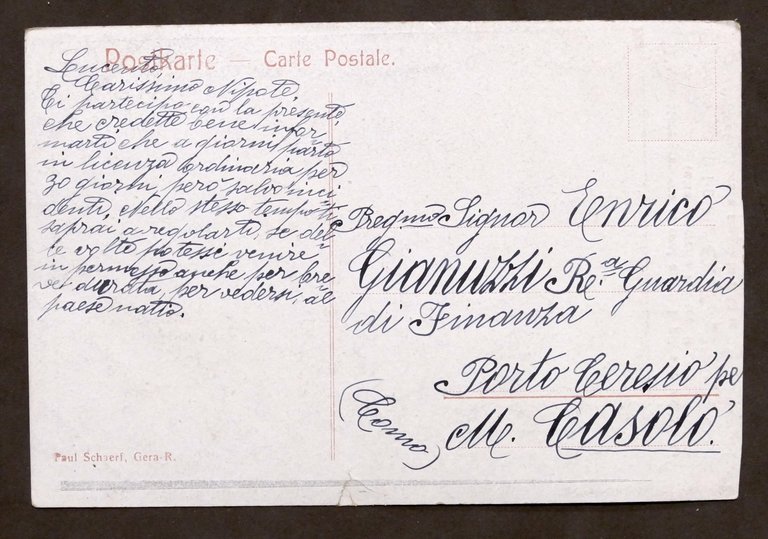 Postkarte — Carte Postale.
Lucento,
Carissimo Nipote
Ti partecipo con la presente
che credetti bene infor=
marti che a giorni parto
in licenza ordinaria per
30 giorni, pero salvo inci=
denti, Nello stesso tempo ti
saprai a regolarti, se del=
le volte potessi venire
in permesso anche per bre=
ve durata, per vedersi, al
paese natio.
Preg.mo Signor Enrico
Gianuzzi R.a Guardia
di Finanza
Porto Ceresio pe
(Como) M. Casolo
Paul Schaerf, Gera-R.